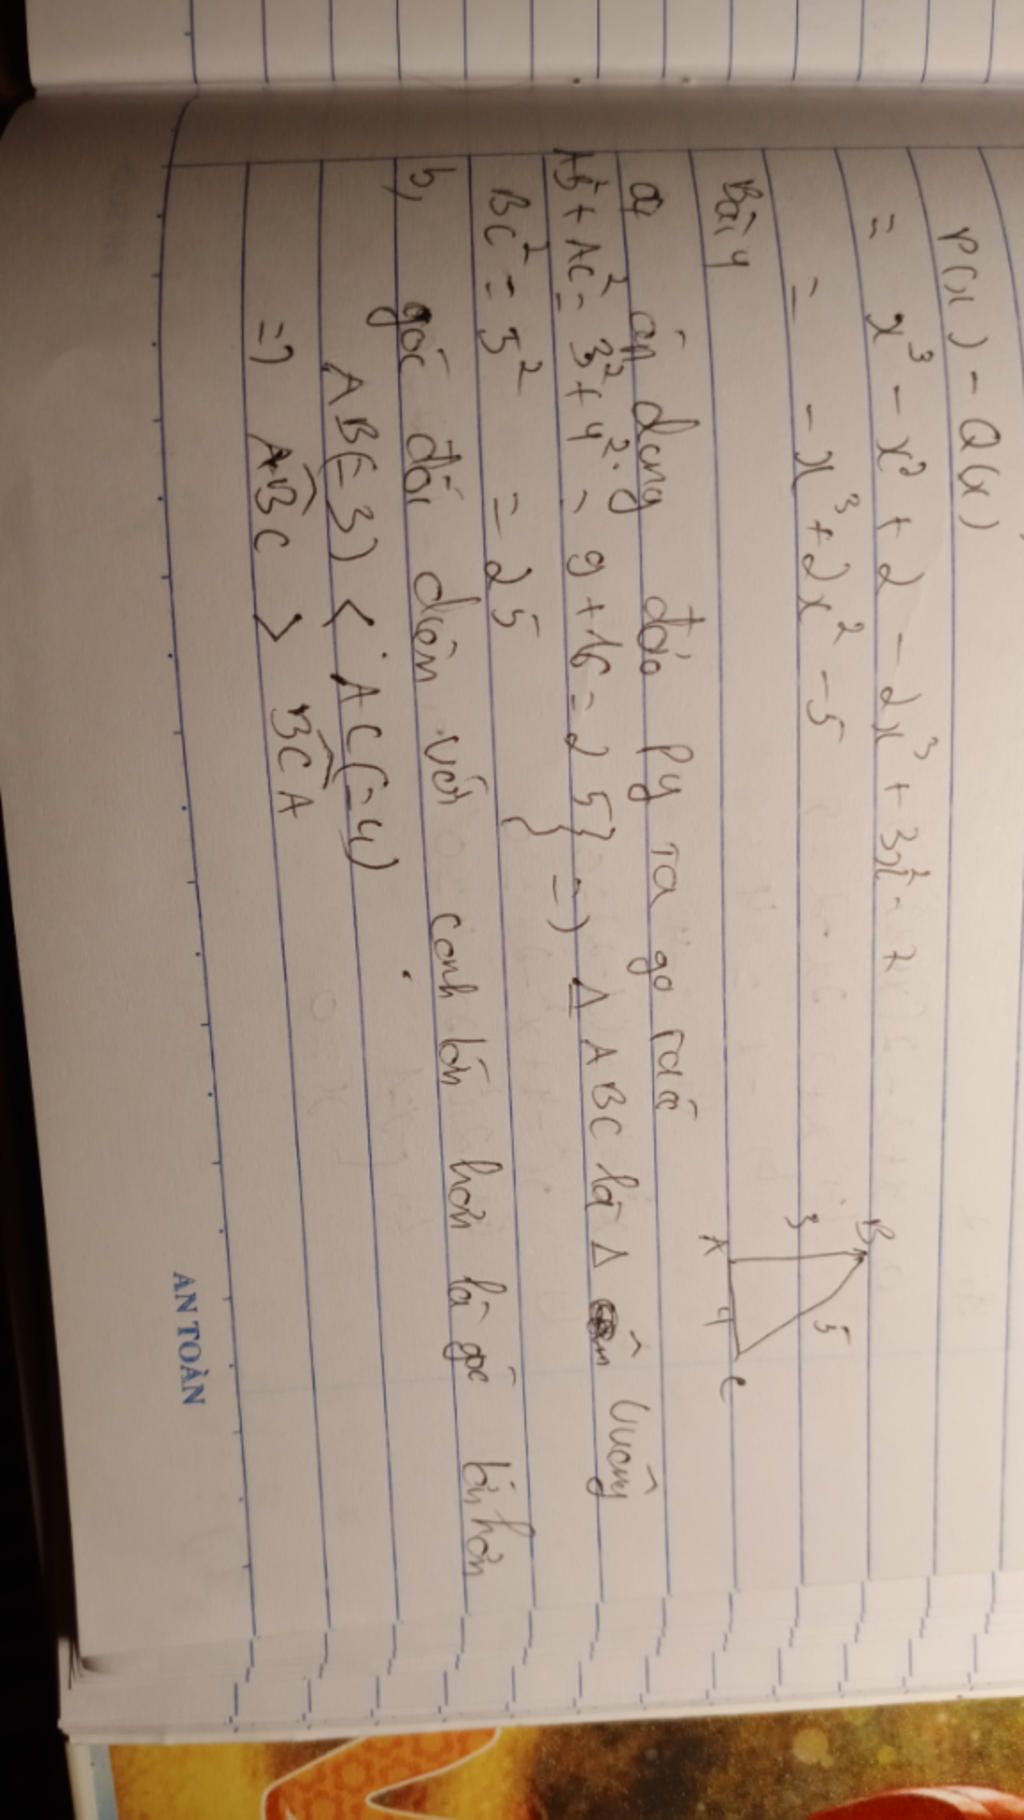 P(x) - Q(x)
= x³ - x² + 2 - 2x³ + 3x² - 7
= - x³ + 2x² - 5
Bài 4
B
3
5
A
4
C
a, áp dụng đảo Py ta go ta có
AB² + AC² = 3² + 4² = 9 + 16 = 25 } => Δ ABC là Δ vuông
BC² = 5² = 25 }
b, góc đối diện với cạnh lớn hơn là góc lớn hơn
AB(=3) < AC(=4)
=> ABC > BCA
AN TOÀN